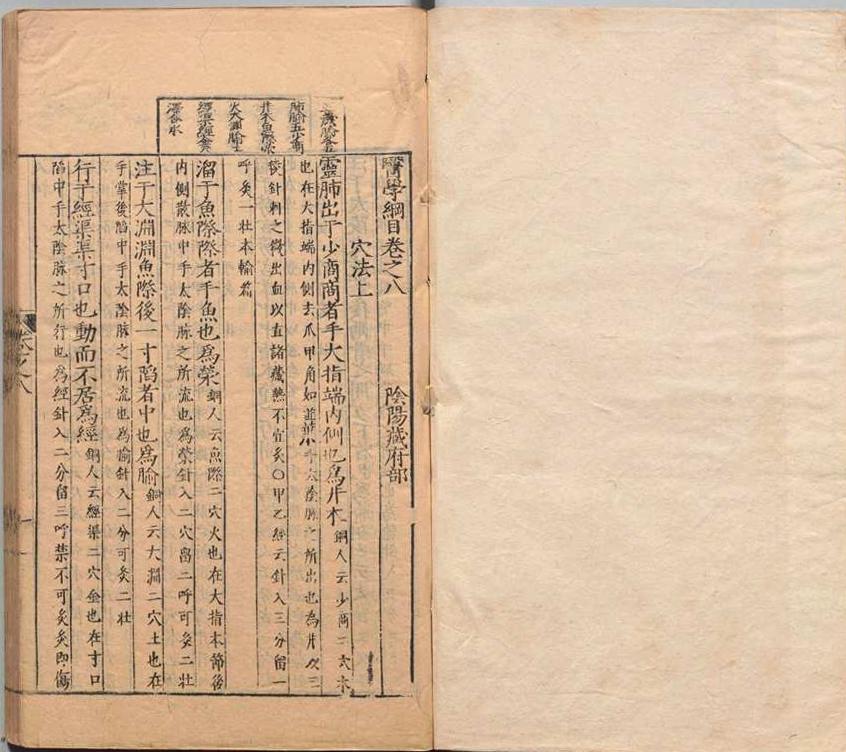 藏腧各五
肺腧五少商
井木魚際滎
火大淵腧土
經渠經金
澤合水
醫學綱目卷之八 陰陽藏府部
穴法上
靈肺出于少商商者手大指端内側也爲井木銅人云少商二穴木
也在大指端内側去爪甲角如韮葉手太陰脉之所出也為井以三
稜針刺之微出血以諸藏熱不宜灸〇甲乙經云針入三分留一
呼灸一壯本輸篇
溜于魚際際者手魚也爲滎銅人云魚際二穴火也在大指本節後
内側散脉中手太陰脉之所流也為滎針入二穴留二呼可灸二壯
注于大淵淵魚際後一寸陷者中也爲腧銅人云大淵二穴土也在
手掌後陷中手太陰脉之所流也為腧針入二分可灸二壯
行于經渠渠寸口也動而不居爲經銅人云經渠二穴金也在寸口
陷中手太陰脉之所行也為經針入二分留三呼禁不可灸灸即傷
卷之八